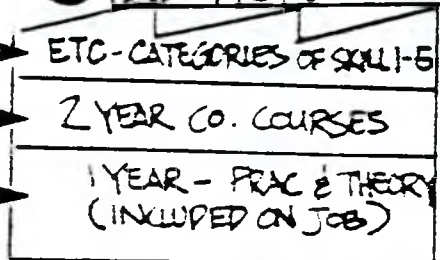 ETC-CATEGORIES OF SKILL 1-5
2 YEAR CO. COURSES
1 YEAR - PRAC & THEORY
(INCLUDED ON JOB)